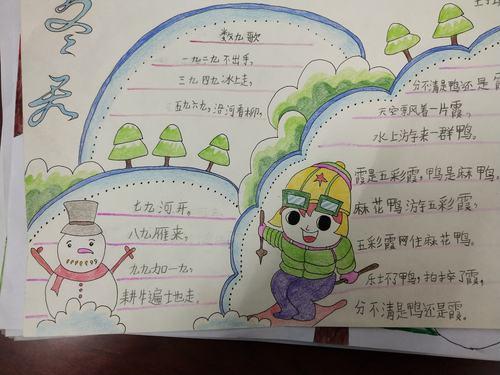 冬天
数九歌
一九二九不出手,
三九四九冰上走,
五九六九,沿河看柳,
七九河开,
八九雁来,
九九加一九,
耕牛遍地走。
分不清是鸭还是霞
天空飘着一片霞,
水上游来一群鸭。
霞是五彩霞,鸭是麻鸭,
麻花鸭游五彩霞,
五彩霞网住麻花鸭。
乐坏了鸭,拍碎了霞,
分不清是鸭还是霞。